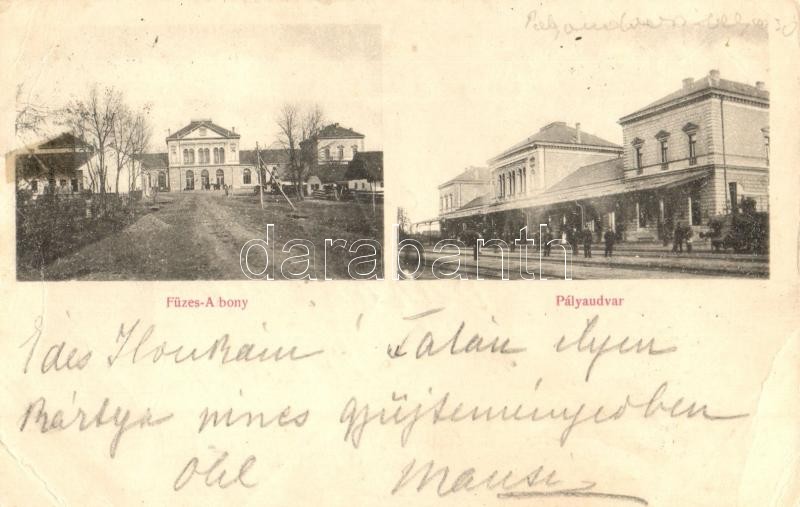 darabanth
Füzes-A bony Pályaudvar
Édes Ilonkám! Talán ilyen
kártya nincs gyűjteményedben
Ölel Mansi